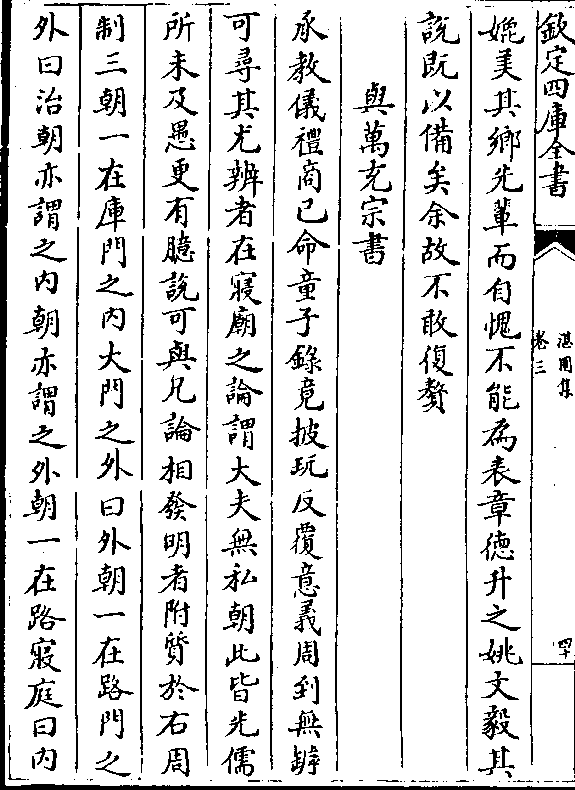 欽定四庫全書
湛園集
卷三
四十
媲美其鄉先輩而自愧不能為表章德升之姚文毅其
說既以備矣余故不敢復贅
與萬充宗書
承教儀禮商已命童子錄竟披玩反覆意義周到無罅
可尋其尤辨者在寢廟之論謂大夫無私朝此皆先儒
所未及愚更有臆說可與兄論相發明者附質於右周
制三朝一在庫門之內大門之外曰外朝一在路門之
外曰治朝亦謂之內朝亦謂之外朝一在路寢庭曰內